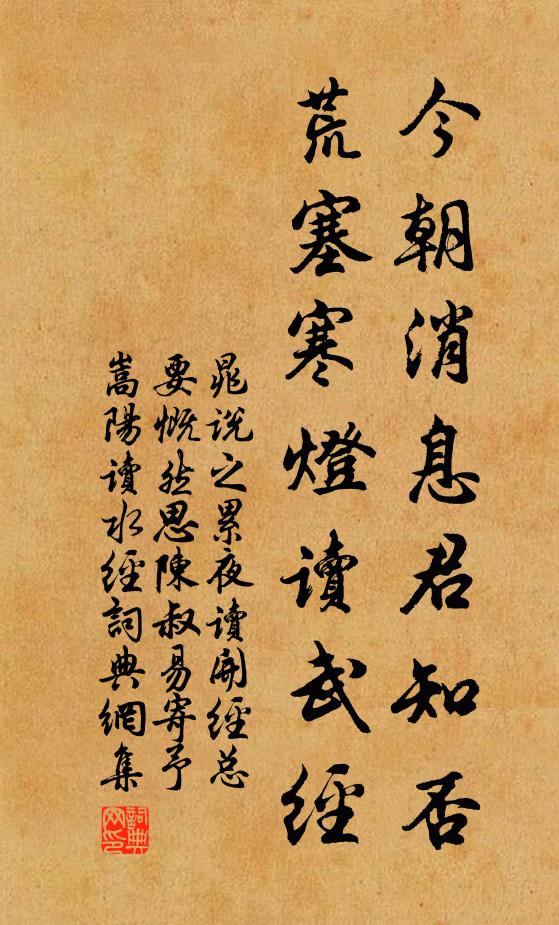 今朝消息君知否
荒塞寒燈讀武經
晁說之累夜讀開經总
要慨然思陳叔易寄予
嵩陽讀水經詞典網集
詞典
网印